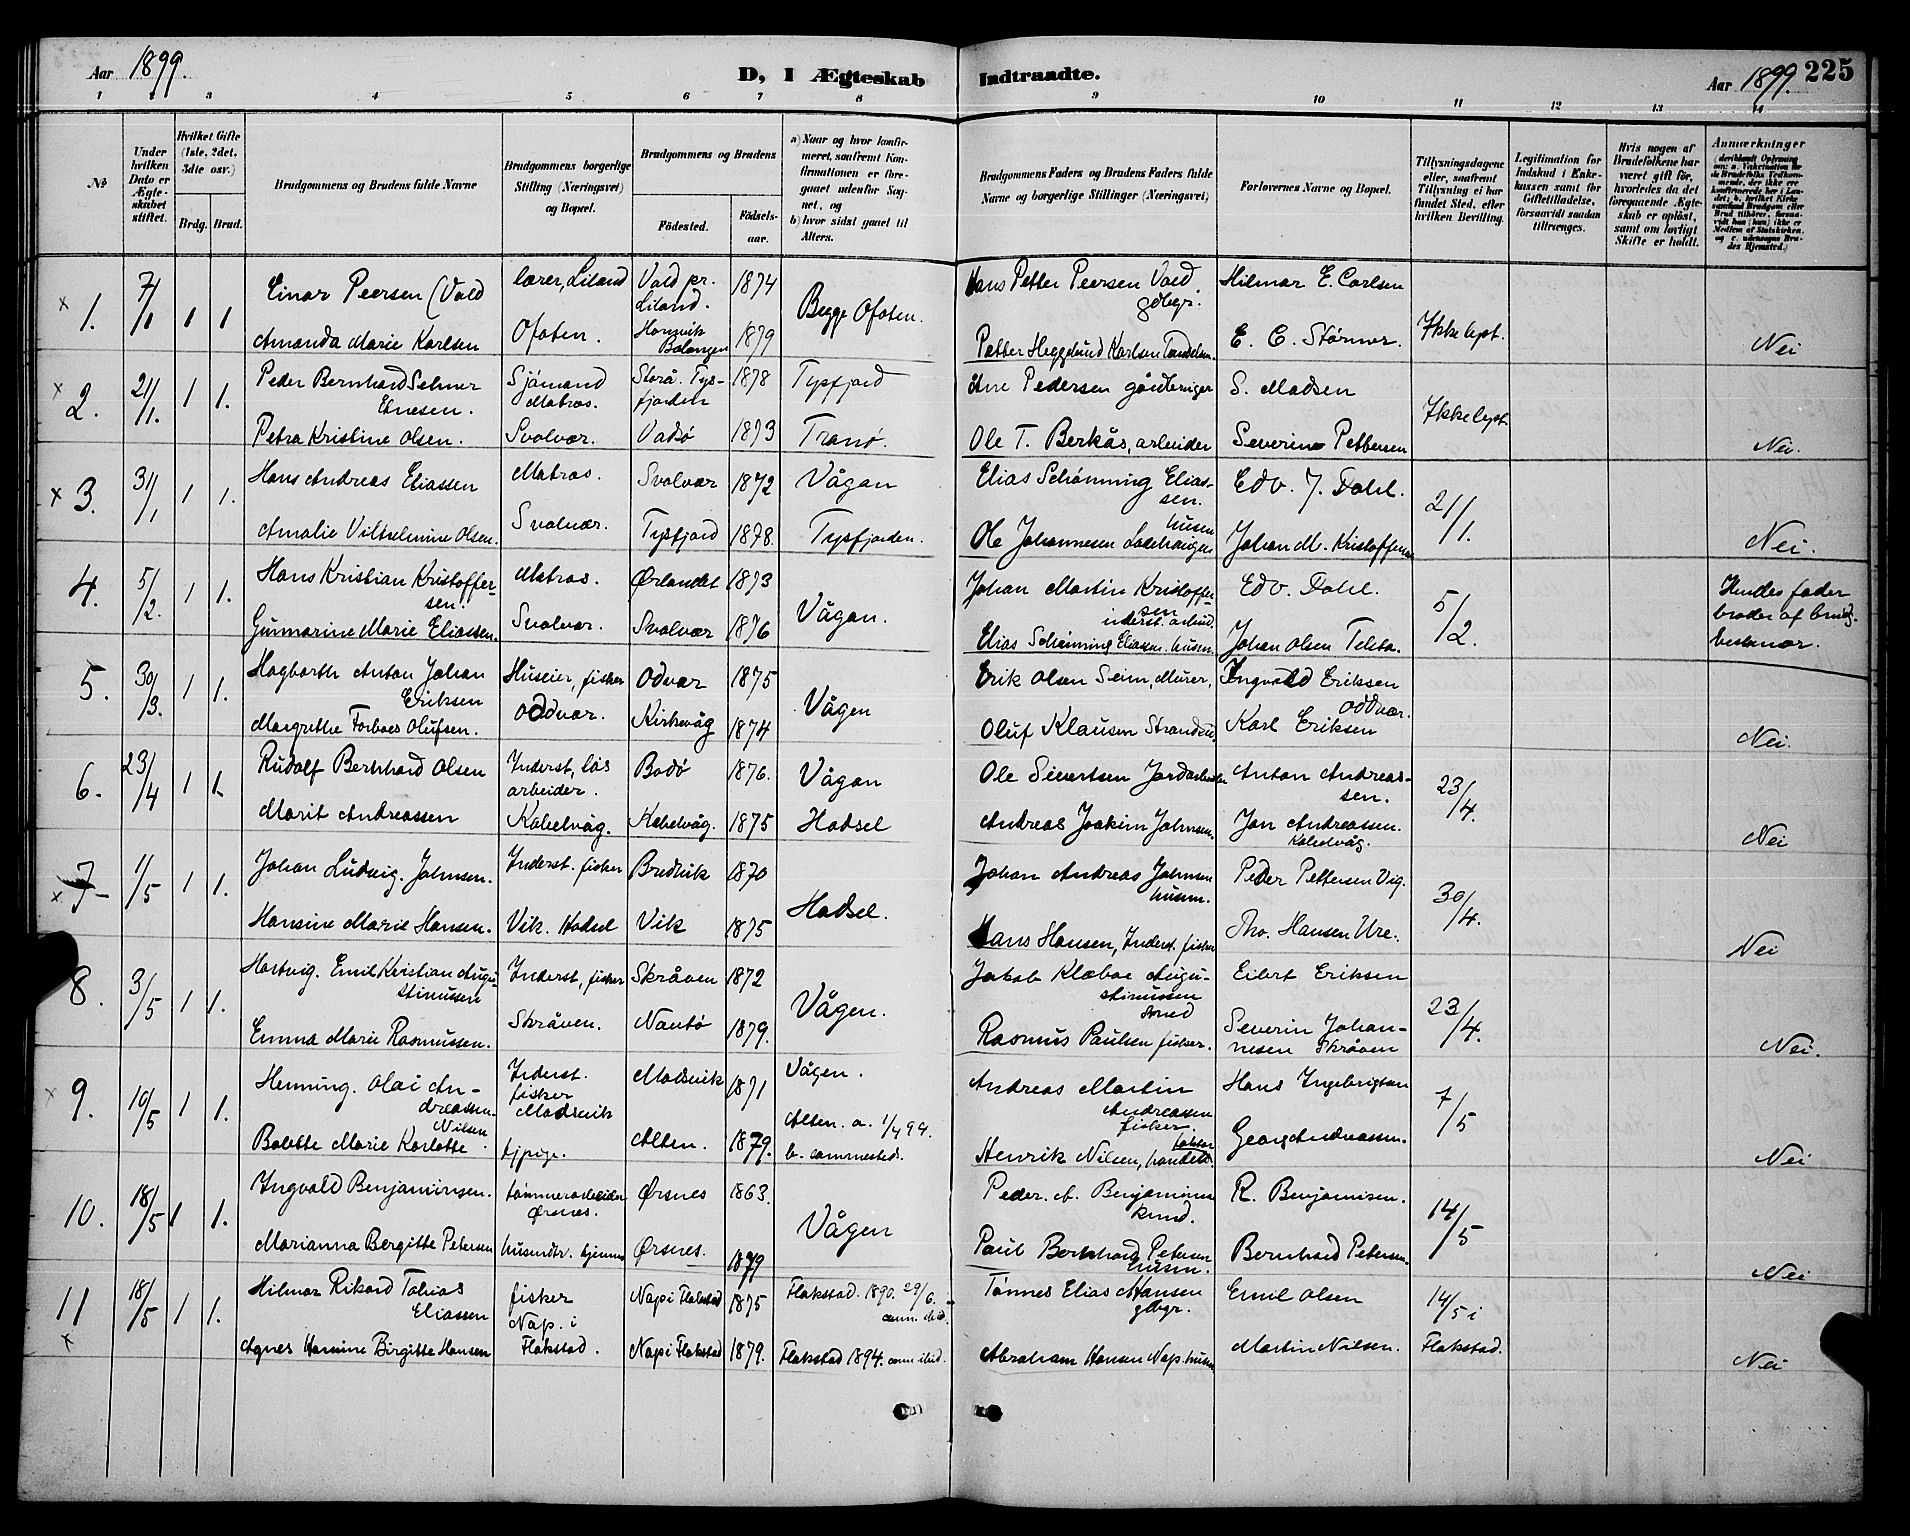 Aar 1899.
D, I Ægteskab Indtraadte.
Aar 1899.
225
1 2 3 4 5 6 7 8 9 10 11 12 13 14
№
Under hvilken Dato er Ægteskabet stiftet.
Hvilket Gifte (1ste, 2det, 3die osv.)
Brdg. Brud.
Brudgommens og Brudens fulde Navne
Brudgommens borgerlige Stilling (Næringsvei) og Bopæl.
Brudgommens og Brudens
Fødested.
Fødselsaar.
a) Naar og hvor konfirmeret, saafremt Konfirmationen er foregaaet udenfor Sognet, og
b) hvor sidst gaaet til Alters.
Brudgommens Faders og Brudens Faders fulde Navne og borgerlige Stillinger (Næringsvei)
Forlovernes Navne og Bopæl.
Tillysningsdagene eller, saafremt Tillysning ei har fundet Sted, efter hvilken Bevilling.
Legitimation for Indskud i Enkekassen samt for Giftetilladelse, forsaavidt saadan tiltrænges.
Hvis nogen af Brudefolkene har været gift før, hvorledes da det foregaaende Ægteskab er opløst, samt om lovligt Skifte er holdt.
Anmærkninger
x 1. 7/1 1 1 Einar Peersen (Vold lærer, Liland Vold pr. Liland. 1874 Begge Ofoten. Hans Petter Peersen Vold gdbgr. Hilmar E. Carlsen Ikke lyst.
Amanda Marie Karlsen Ofoten. 1879 Petter Heggelund Karlsen E. C. Størmer. Nei
x 2. 21/1. 1 1. Peder Bernhard Selmer Enesen. Sjömand Matros. Storå. Tysfjorden 1878 Tysfjord Pedersen gårdbruger S. Madsen Ikke lyst.
Petra Kristine Olsen. Svolvær. Vadsö 1873 Tranö. Ole T. Berkås, arbeider Severin Pettersen Nei.
x 3. 31/1 1 1. Hans Andreas Eliassen Matros. Svolvær 1872 Vågan Elias Schönning Eliassen. Edv. J. Dahl. 21/1.
Amalie Vilhelmine Olsen. Svolvær. Tysfjord 1878. Tysfjorden. Ole Johannesen husm. Johan M. Kristoffersen Nei.
4. 5/2. 1 1. Hans Kristian Kristoffersen. Matros. Ørlandet 1873 Vågan. Johan Martin Kristoffersen inderst. arbeid. Edv. Dahl. 5/2. Hendes fader broder af
Gunmarine Marie Eliassen. Svolvær. Svolvær 1876 Elias Schönning Eliassen husm. Johan Olsen
5. 30/3. 1 1. Hagbarth Anton Johan Eriksen Huseier, fisker Odvær 1875 Vågan Erik Olsen Seim, Murer. Ingvald Eriksen Oddvær.
Margrethe Forbaes Olufsen. Oddvær. Kirkevåg 1874 Oluf Klausen Karl Eriksen Nei.
6. 23/4 1 1. Rudolf Bernhard Olsen Inderst, løs arbeider. Bodö 1876. Vågan Ole Sivertsen Jordarbeider Anton Andreassen. 23/4.
Marit Andreassen Kabelvåg. Kabelvåg. 1875 Hadsel Andreas Joakim Johnsen. Jon Andreassen. Kabelvåg. Nei
x 7 1/5 1 1. Johan Ludvig. Johnsen. Inderst. fisker Bredvik 1870 Hadsel. Johan Andreas Johnsen husm. Peder Pettersen Vig. 30/4.
Hansine Marie Hansen. Vik. Hadsel Vik 1875 Hans Hansen, Inderst. fisker Tho. Hansen Ure. Nei
8. 3/5 1 1. Hartvig. Emil Kristian Augustinussen Inderst, fisker Skråven 1872 Vågen. Jakob Klæboe Augustinussen Eilert Eriksen 23/4.
Emma Marie Rasmussen. Skråven. 1879. Rasmus Paulsen fisker. Severin Johannesen Skråven Nei.
x 9. 10/5 1 1. Henning. Olai Andreassen. Inderst. fisker Madsvik Madsvik 1871 Vågen. Andreas Martin Andreassen fisker. Hans Ingebrigtsen 7/5
Bolette Marie Karlotte Nilsen tjpige. Alten. 1879. Alten. a. 1/7 94. b. sammesteds. Henrik Nilsen, Georg Andreassen. Nei
10. 18/5 1 1. Ingvald Benjaminsen. tømmerarbeider Ørsnes. Ørsnes 1863. Vågen Peder. A. Benjaminsen R. Benjaminsen. 14/5
Marianna Bergitte Petersen husmdtr. hjemme Ørsnes. 1879 Paul Bernhard Petersen husm. Bernhard Petersen. Nei
11 x 18/5 1 1. Hilmar Rikard Tobias Eliassen fisker Nap. i Flakstad. Nap i Flakstad 1875 Flakstad. 1890. 29/6. Tønnes Elias Hansen gdbgr. Emil Olsen 14/5 i Flakstad.
Agnes Hansine Birgitte Hansen Nap i Flakstad 1879. Flakstad 1894. comm ibid. Abraham Hansen Nap. husm Martin Nilsen. Nei